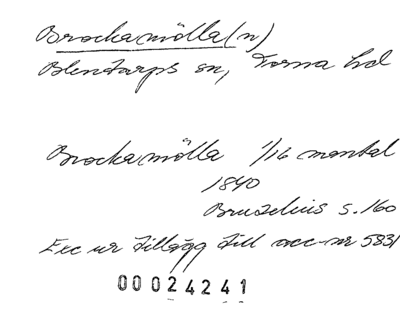 Brockamölla(n)
Blentarps sn, Torna hd
Brockamölla 1/16 mantal
1840
Bruzelius s. 160
Exc ur tillägg till acc-nr 5831
00024241